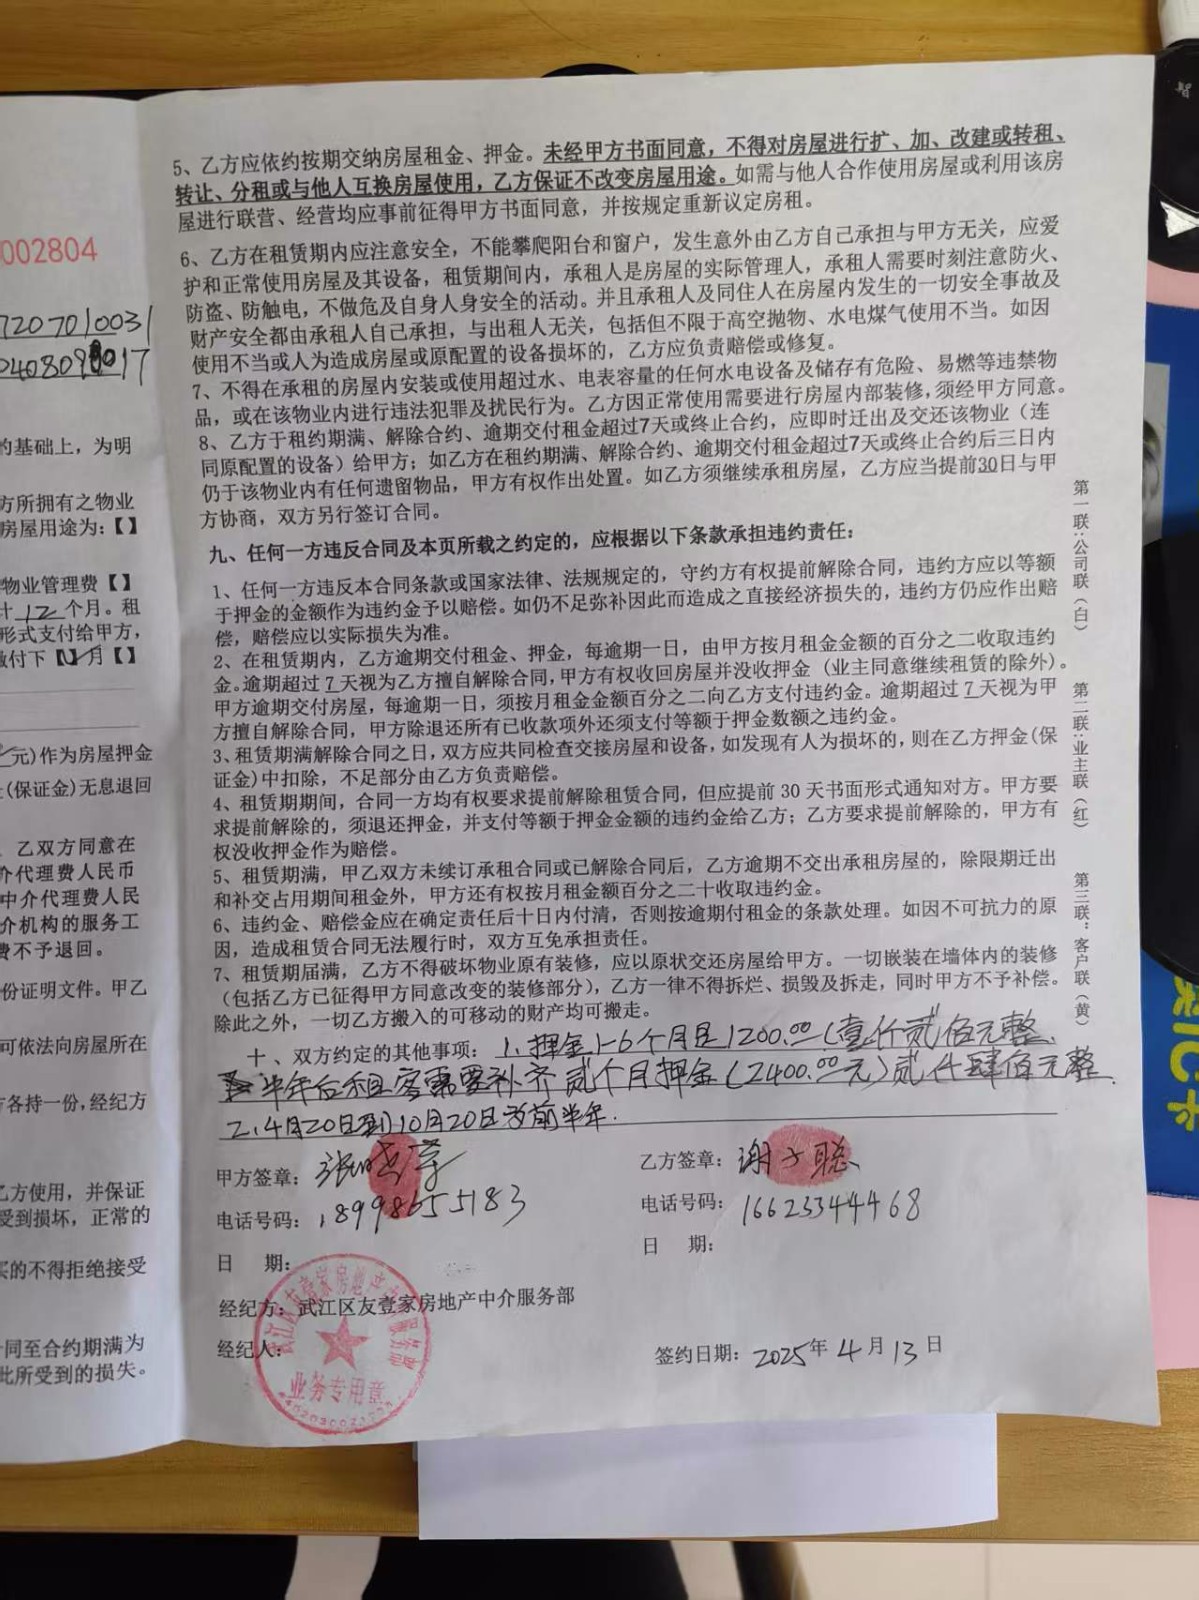 002804
7207010031
的基础上，为明
方所拥有之物业
房屋用途为:【】
物业管理费【】
计12个月。租
形式支付给甲方，
元)作为房屋押金
(保证金)无息退回
乙双方同意在
介代理费人民币
中介代理费人民
介机构的服务工
费不予退回。
份证明文件。甲乙
可依法向房屋所在
方各持一份,经纪方
乙方使用，并保证
受到损坏，正常的
买的不得拒绝接受
同至合约期满为
此所受到的损失。
5、乙方应依约按期交纳房屋租金、押金。未经甲方书面同意，不得对房屋进行扩、加、改建或转租、
转让、分租或与他人互换房屋使用，乙方保证不改变房屋用途。如需与他人合作使用房屋或利用该房
屋进行联营、经营均应事前征得甲方书面同意，并按规定重新议定房租。
6、乙方在租赁期内应注意安全，不能攀爬阳台和窗户，发生意外由乙方自己承担与甲方无关，应爱
护和正常使用房屋及其设备，租赁期间内，承租人是房屋的实际管理人，承租人需要时刻注意防火、
防盗、防触电，不做危及自身人身安全的活动。并且承租人及同住人在房屋内发生的一切安全事故及
财产安全都由承租人自己承担，与出租人无关，包括但不限于高空抛物、水电煤气使用不当。如因
使用不当或人为造成房屋或原配置的设备损坏的，乙方应负责赔偿或修复。
7、不得在承租的房屋内安装或使用超过水、电表容量的任何水电设备及储存有危险、易燃等违禁物
品，或在该物业内进行违法犯罪及扰民行为。乙方因正常使用需要进行房屋内部装修,须经甲方同意。
8、乙方于租约期满、解除合约、逾期交付租金超过7天或终止合约，应即时迁出及交还该物业（连
同原配置的设备）给甲方；如乙方在租约期满、解除合约、逾期交付租金超过7天或终止合约后三日内
仍于该物业内有任何遗留物品，甲方有权作出处置。如乙方须继续承租房屋，乙方应当提前30日与甲
方协商，双方另行签订合同。
九、任何一方违反合同及本页所载之约定的，应根据以下条款承担违约责任：
1、任何一方违反本合同条款或国家法律、法规规定的，守约方有权提前解除合同，违约方应以等额
于押金的金额作为违约金予以赔偿。如仍不足弥补因此而造成之直接经济损失的，违约方仍应作出赔
偿，赔偿应以实际损失为准。
2、在租赁期内，乙方逾期交付租金、押金，每逾期一日，由甲方按月租金金额的百分之二收取违约
金。逾期超过 7 天视为乙方擅自解除合同,甲方有权收回房屋并没收押金（业主同意继续租赁的除外）。
甲方逾期交付房屋，每逾期一日，须按月租金金额百分之二向乙方支付违约金。逾期超过 7 天视为甲
方擅自解除合同，甲方除退还所有已收款项外还须支付等额于押金数额之违约金。
3、租赁期满解除合同之日，双方应共同检查交接房屋和设备，如发现有人为损坏的，则在乙方押金(保
证金)中扣除，不足部分由乙方负责赔偿。
4、租赁期期间，合同一方均有权要求提前解除租赁合同，但应提前 30 天书面形式通知对方。甲方要
求提前解除的，须退还押金，并支付等额于押金金额的违约金给乙方；乙方要求提前解除的，甲方有
权没收押金作为赔偿。
5、租赁期满，甲乙双方未续订承租合同或已解除合同后，乙方逾期不交出承租房屋的，除限期迁出
和补交占用期间租金外，甲方还有权按月租金额百分之二十收取违约金。
6、违约金、赔偿金应在确定责任后十日内付清，否则按逾期付租金的条款处理。如因不可抗力的原
因，造成租赁合同无法履行时，双方互免承担责任。
7、租赁期届满，乙方不得破坏物业原有装修，应以原状交还房屋给甲方。一切嵌装在墙体内的装修
（包括乙方已征得甲方同意改变的装修部分），乙方一律不得拆烂、损毁及拆走，同时甲方不予补偿。
除此之外，一切乙方搬入的可移动的财产均可搬走。
十、双方约定的其他事项：1.押金1-6个月是1200.00(壹仟贰佰元整
半年后租客需要补齐贰个月押金(2400.00元)贰仟肆佰元整
2.4月20日到10月20日为前半年.
甲方签章：
乙方签章：谢子聪
电话号码：18998655183
电话号码：16623344468
日 期：
日 期：
经纪方：武江区友壹家房地产中介服务部
经纪人：
签约日期：2025年4月13日
武江区友壹家房地产中介服务部
业务专用章
第一联：公司联（白）
第二联：业主联（红）
第三联：客户联（黄）